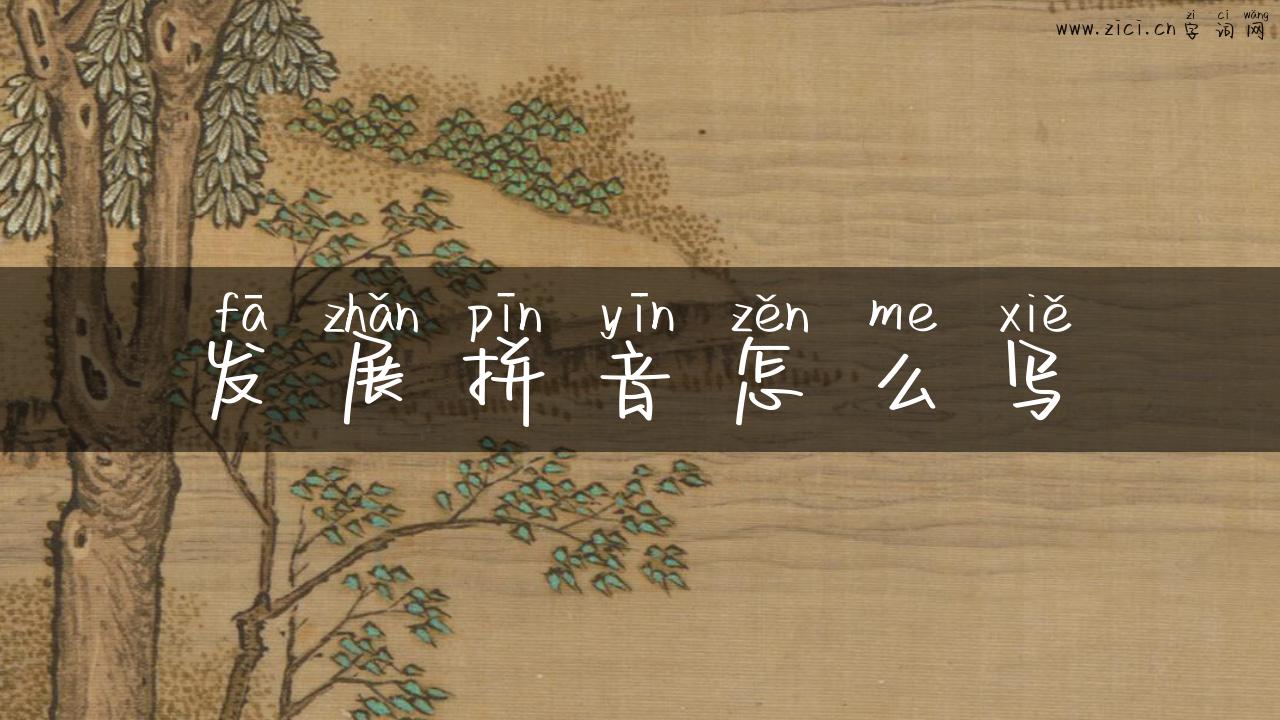 zì cí wǎng
www.zici.cn 字词网
fā zhǎn pīn yīn zěn me xiě
发展拼音怎么写